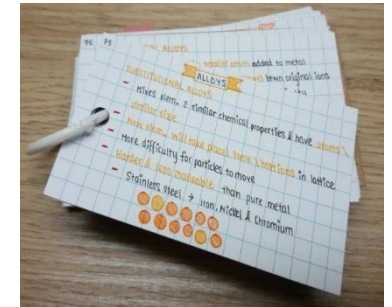 76 75
ALLOYS
smaller atom added to metal
btwn original ions
ALLOYS
SUBSTITUTIONAL ALLOYS
- Mixes elem. similar chemical properties & have atoms
similar size
- New elem. will take place in lattice.
- More difficulty for particles to move
- Harder & less malleable than pure metal
- Stainless steel → Iron, Nickel & Chromium